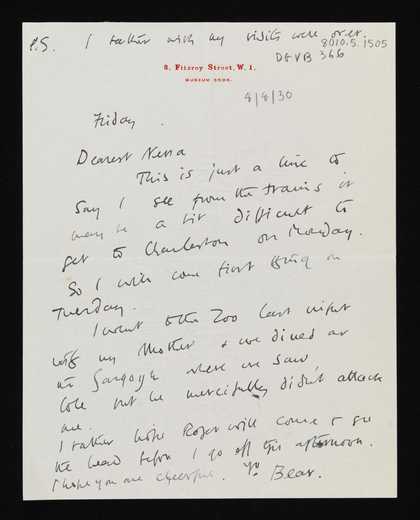 P.S. I rather wish my visits were over.
8010.5.1505
DGVB 366
8, Fitzroy Street, W. 1.
MUSEUM
4/8/30
Friday.
Dearest Nessa
This is just a line to
say I see from the trains it
may be a bit difficult to
get to Charleston on Monday.
So I will come first thing on
Tuesday.
I went to the Zoo last night
with my Mother & we dined at
the Gargoyle where we saw
but he mercifully didn't attack
me.
I rather hope Roger will come & see
the head before I go off this afternoon.
I hope you are cheerful. Yr Bear.